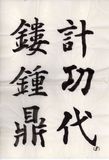 計功代
鏤鍾鼎